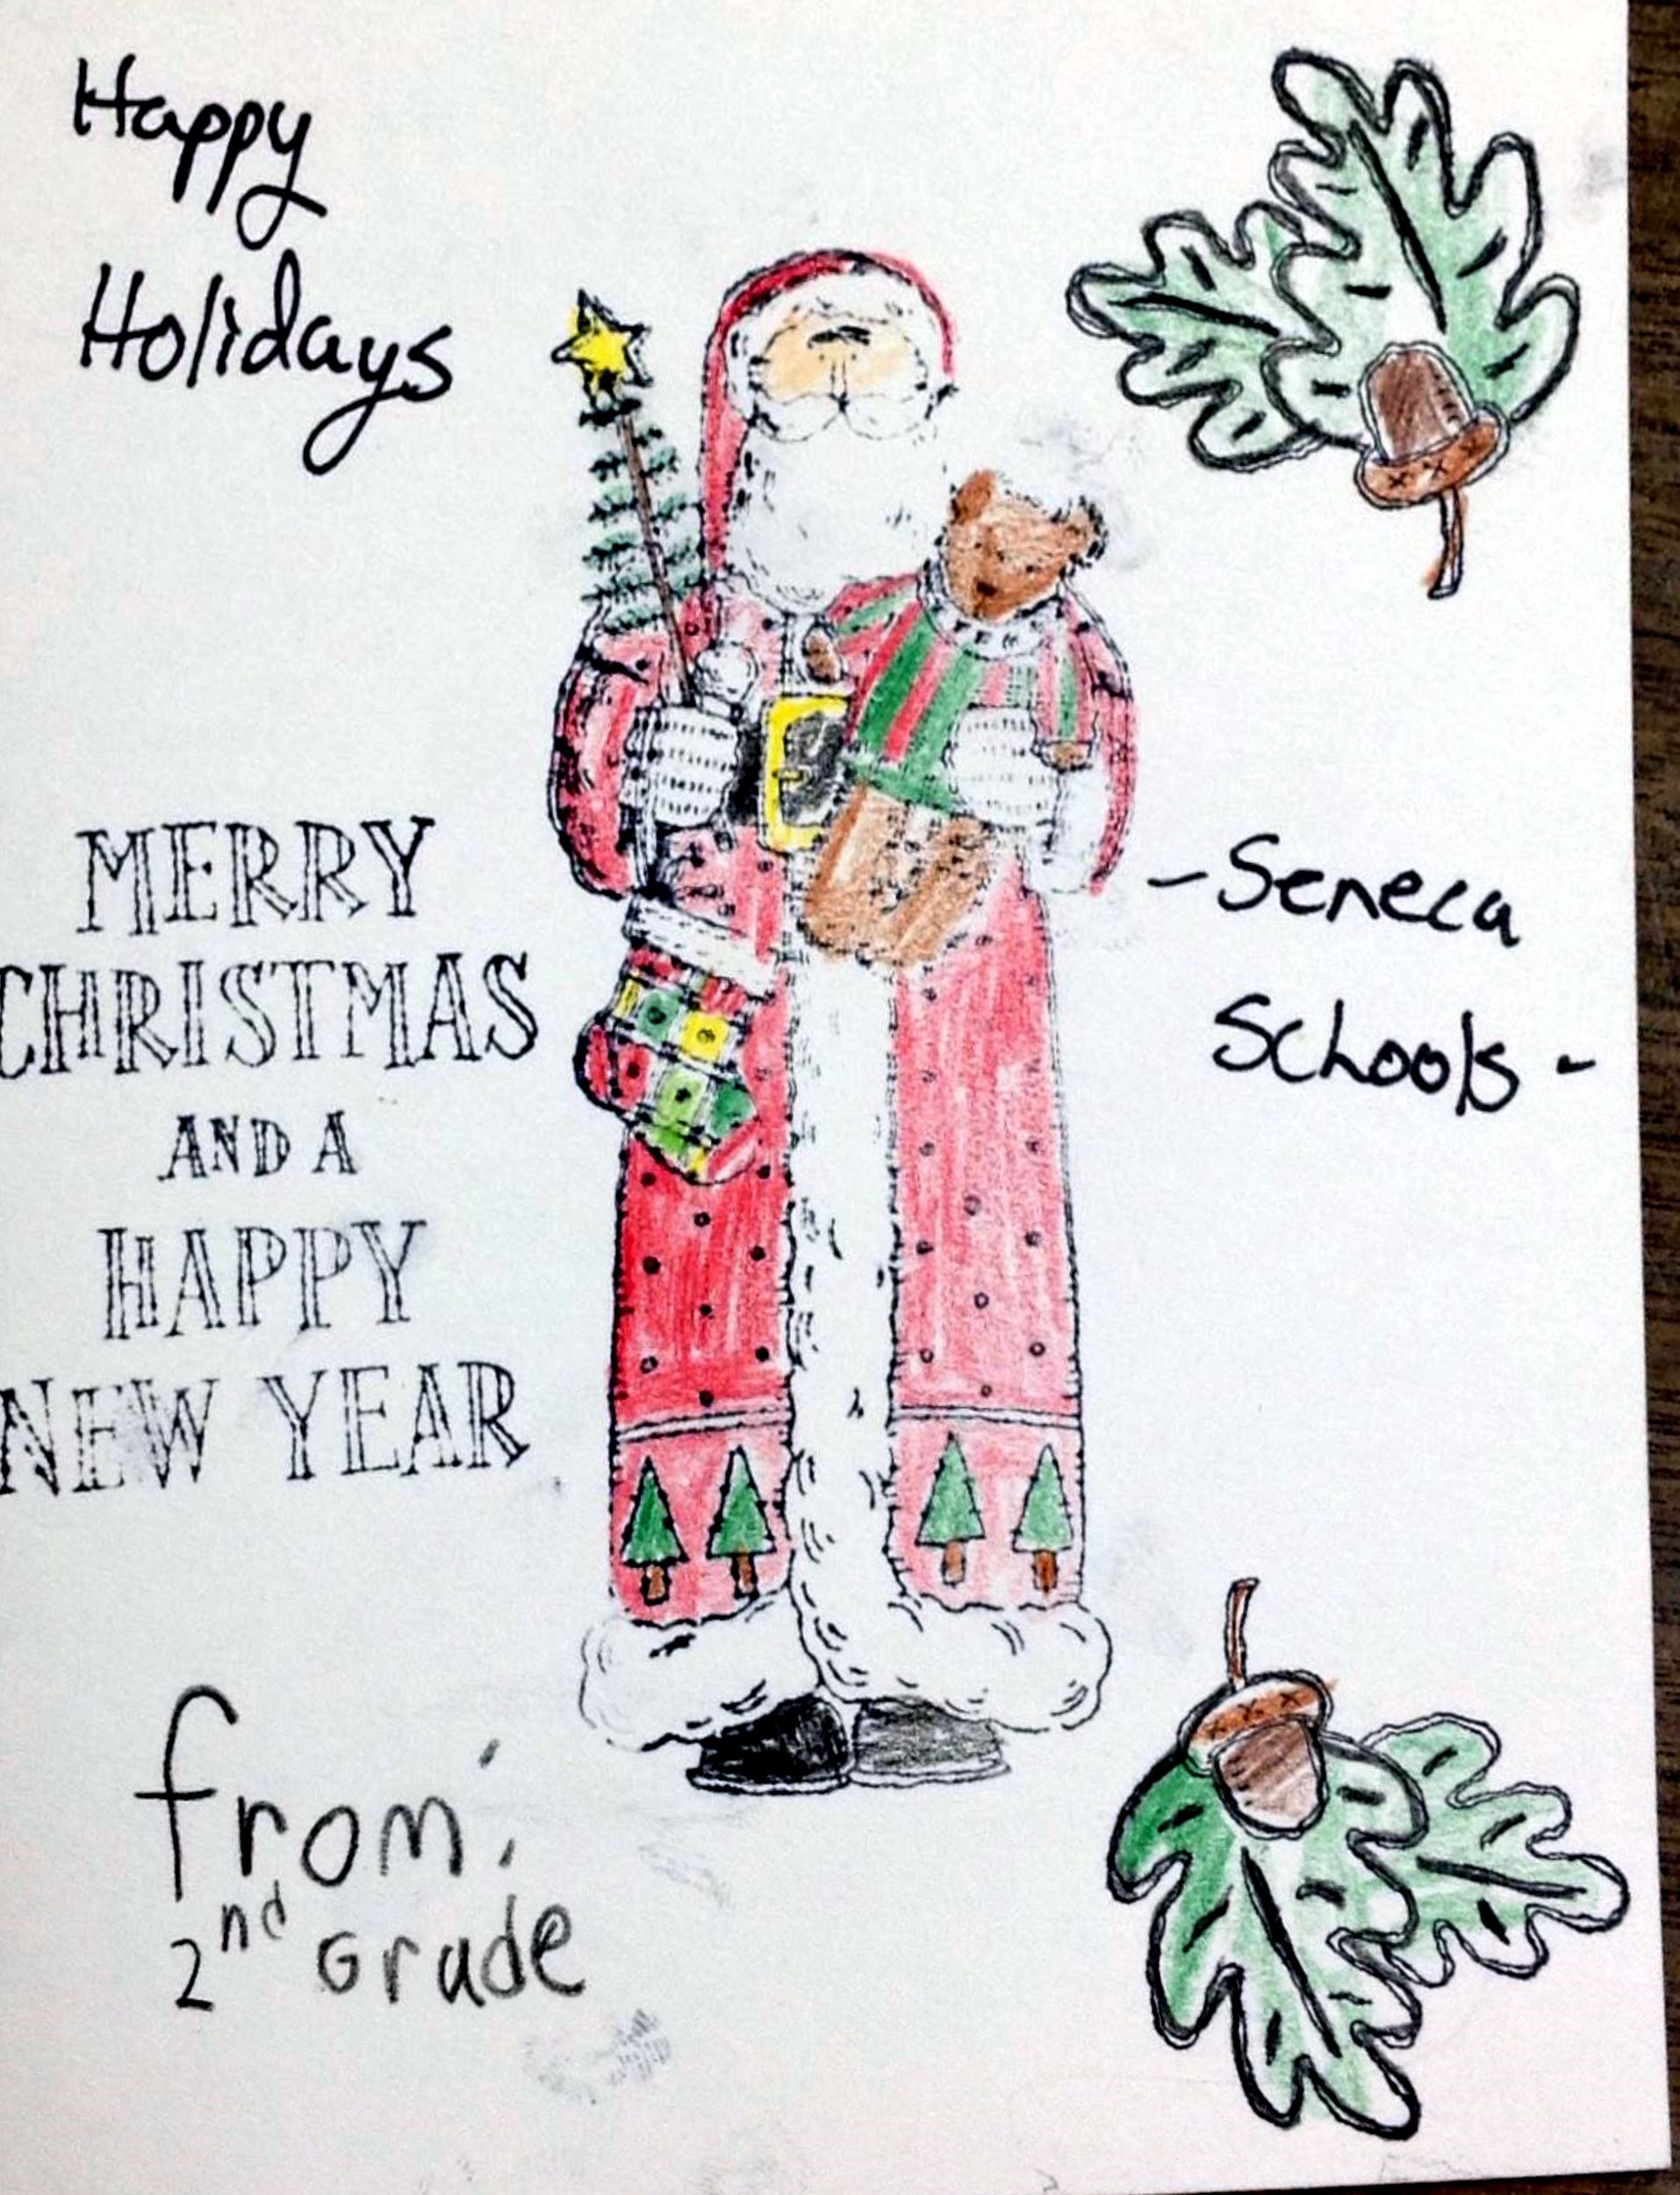 Happy
Holidays
MERRY
CHRISTMAS
AND A
HAPPY
NEW YEAR
-Seneca
Schools-
from:
2nd Grade